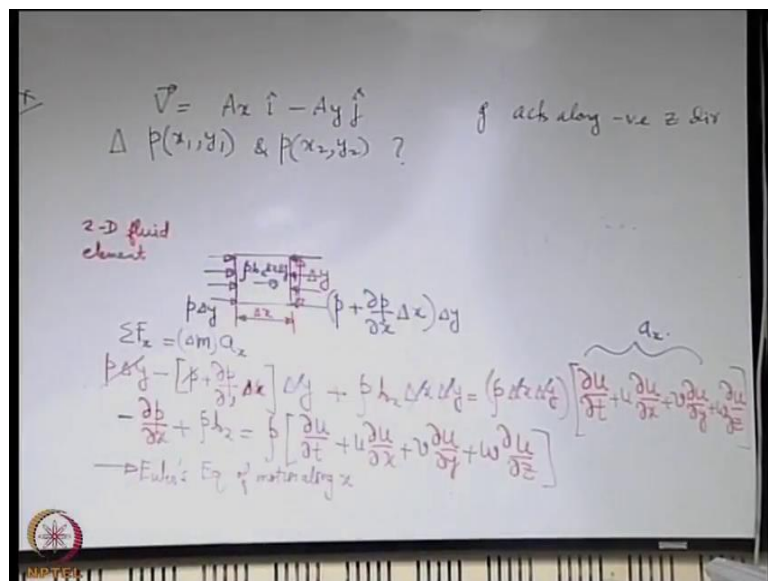 Ex
V⃗ = Ax î − Ay ĵ g acts along -ve z dir
Δ p(x₁,y₁) & p(x₂,y₂) ?
2-D fluid
element
ρbₓΔxΔy Δy
pΔy Δx (p + ∂p/∂x Δx) Δy
ΣFₓ = (Δm) aₓ aₓ.
pΔy − [p + ∂p/∂x Δx] Δy + ρbₓ Δx Δy = (ρ Δx Δy) [∂u/∂t + u ∂u/∂x + v ∂u/∂y + w ∂u/∂z]
− ∂p/∂x + ρbₓ = ρ [∂u/∂t + u ∂u/∂x + v ∂u/∂y + w ∂u/∂z]
→ Euler's Eq of motion along x
NPTEL